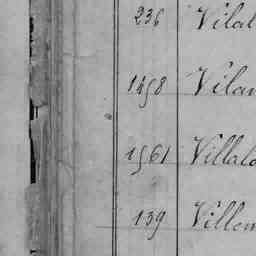 236 Vilal
1458 Vilan
1561 Villalo
139 Villem